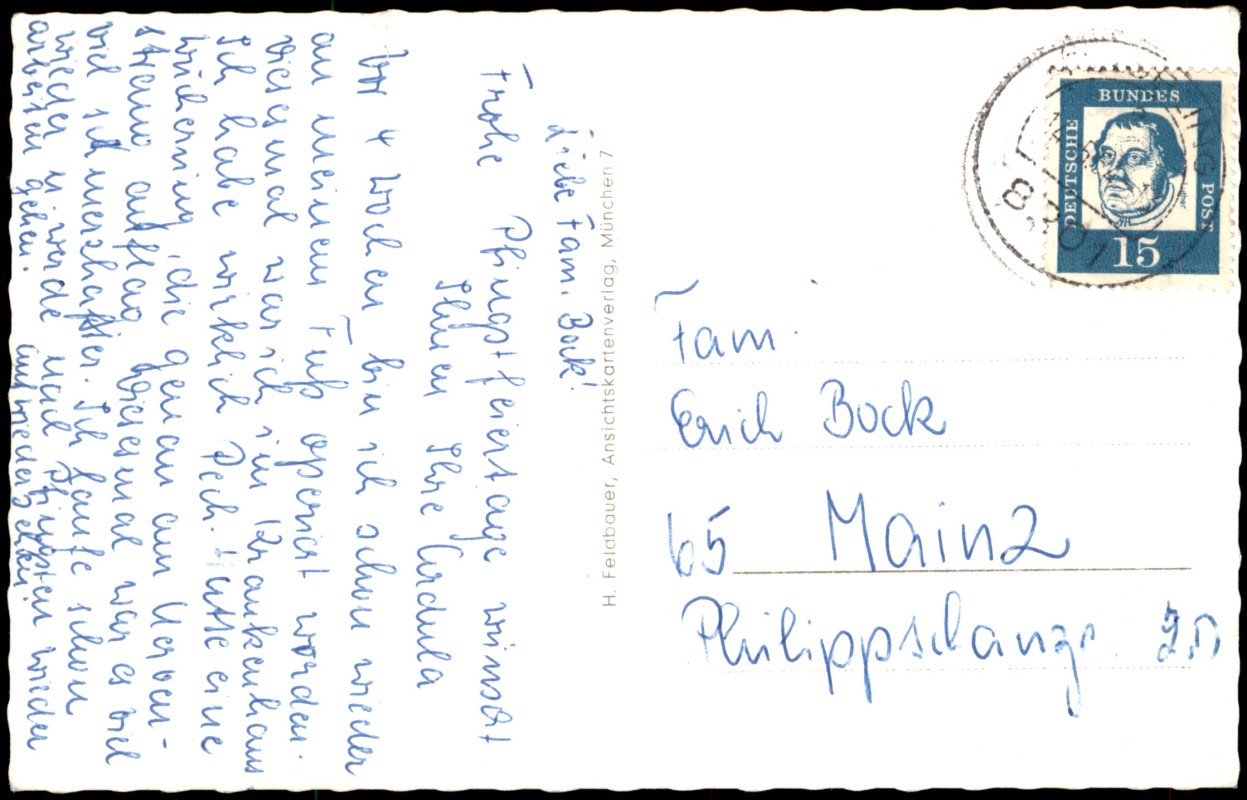 Liebe Fam. Bock!
Frohe Pfingstfeiertage wünscht
Ihnen Ihre Cordula
Vor 4 Wochen bin ich schon wieder
an meinem Fuß operiert worden.
Diesesmal war ich im Krankenhaus.
Ich habe wirklich Pech. Hatte eine
Wucherung, die genau am Nerven-
strang auflag. Diesesmal war es viel
viel schmerzhafter. Ich laufe schon
wieder u. werde nach Pfingsten wieder
arbeiten gehen. auf wiedersehen
H. Feldbauer, Ansichtskartenverlag, München 7
DEUTSCHE BUNDES POST
Luther
15
Fam.
Erich Bock
65 Mainz
Philippschanzs.